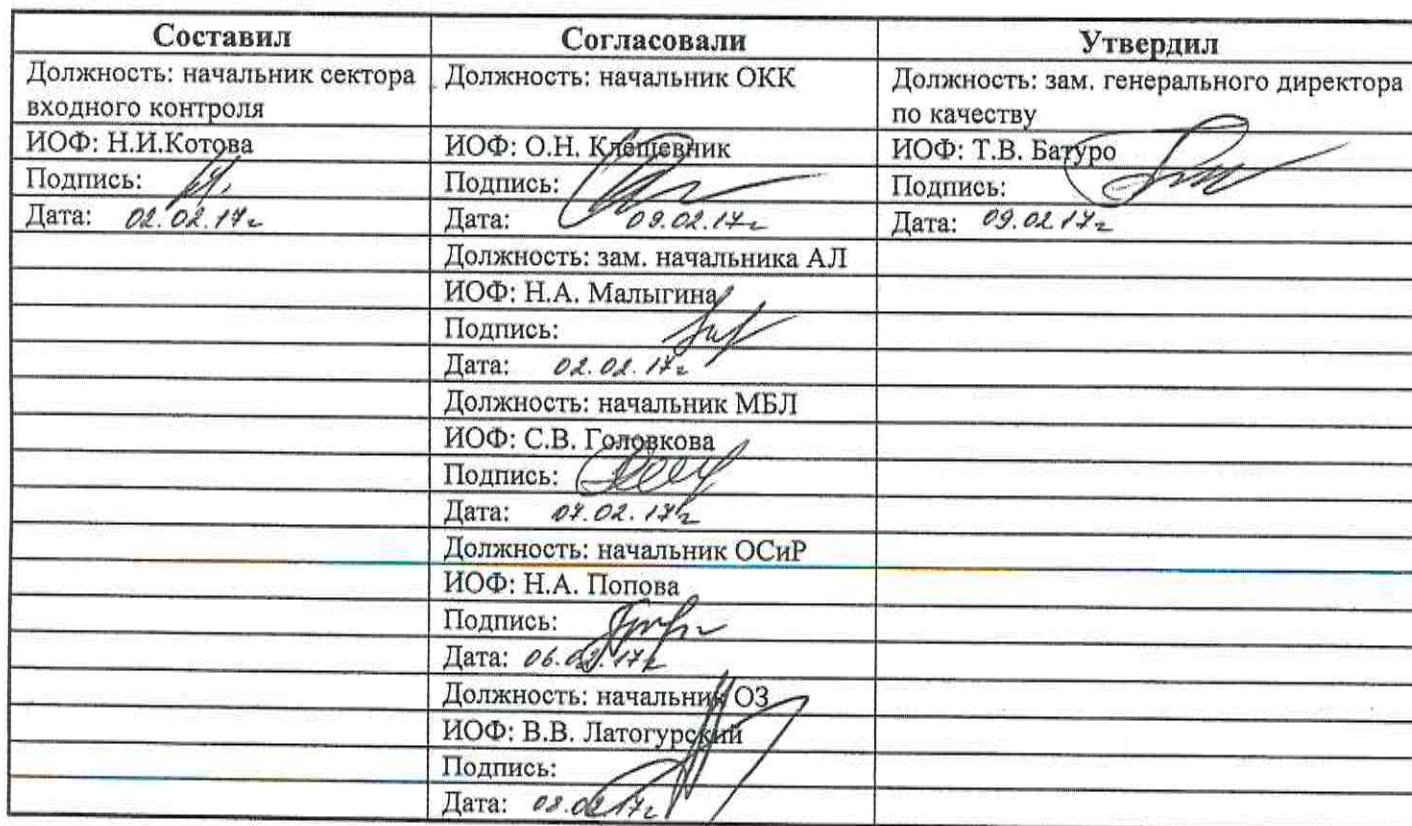 Составил
Согласовали
Утвердил
Должность: начальник сектора
входного контроля
Должность: начальник ОКК
Должность: зам. генерального директора
по качеству
ИОФ: Н.И.Котова
ИОФ: О.Н. Клещевник
ИОФ: Т.В. Батуро
Подпись:
Подпись:
Подпись:
Дата: 02.02.17г
Дата: 09.02.17г
Дата: 09.02.17г
Должность: зам. начальника АЛ
ИОФ: Н.А. Малыгина
Подпись:
Дата: 02.02.17г
Должность: начальник МБЛ
ИОФ: С.В. Головкова
Подпись:
Дата: 07.02.17г
Должность: начальник ОСиР
ИОФ: Н.А. Попова
Подпись:
Дата: 06.02.17г
Должность: начальник ОЗ
ИОФ: В.В. Латогурский
Подпись:
Дата: 08.02.17г